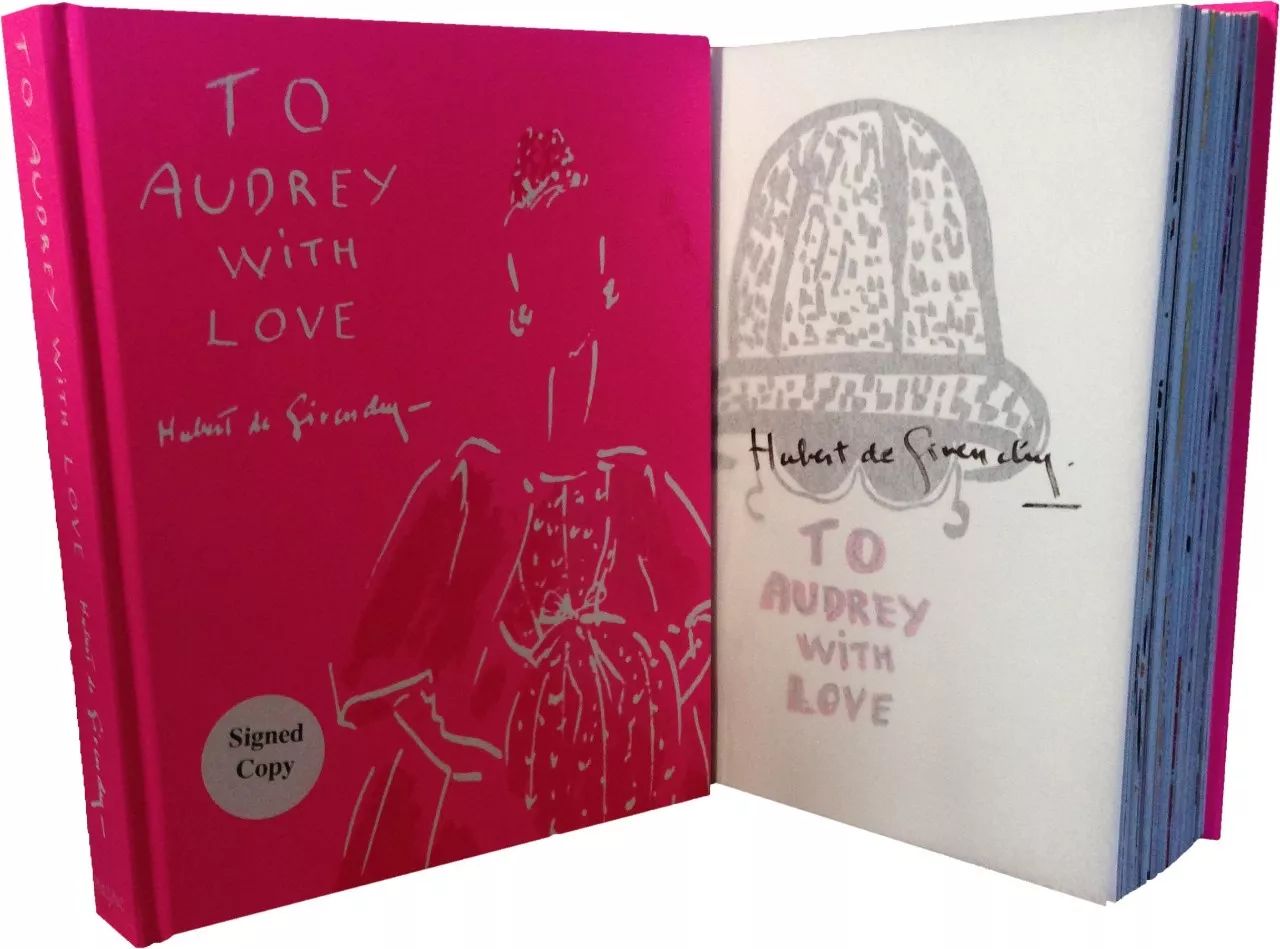 TO AUDREY WiTH LOVE Hubert de Givenchy
TO
AUDREY
WiTH
LOVE
Hubert de Givenchy
Signed
Copy
Hubert de Givenchy.
TO
AUDREY
WiTH
LOVE